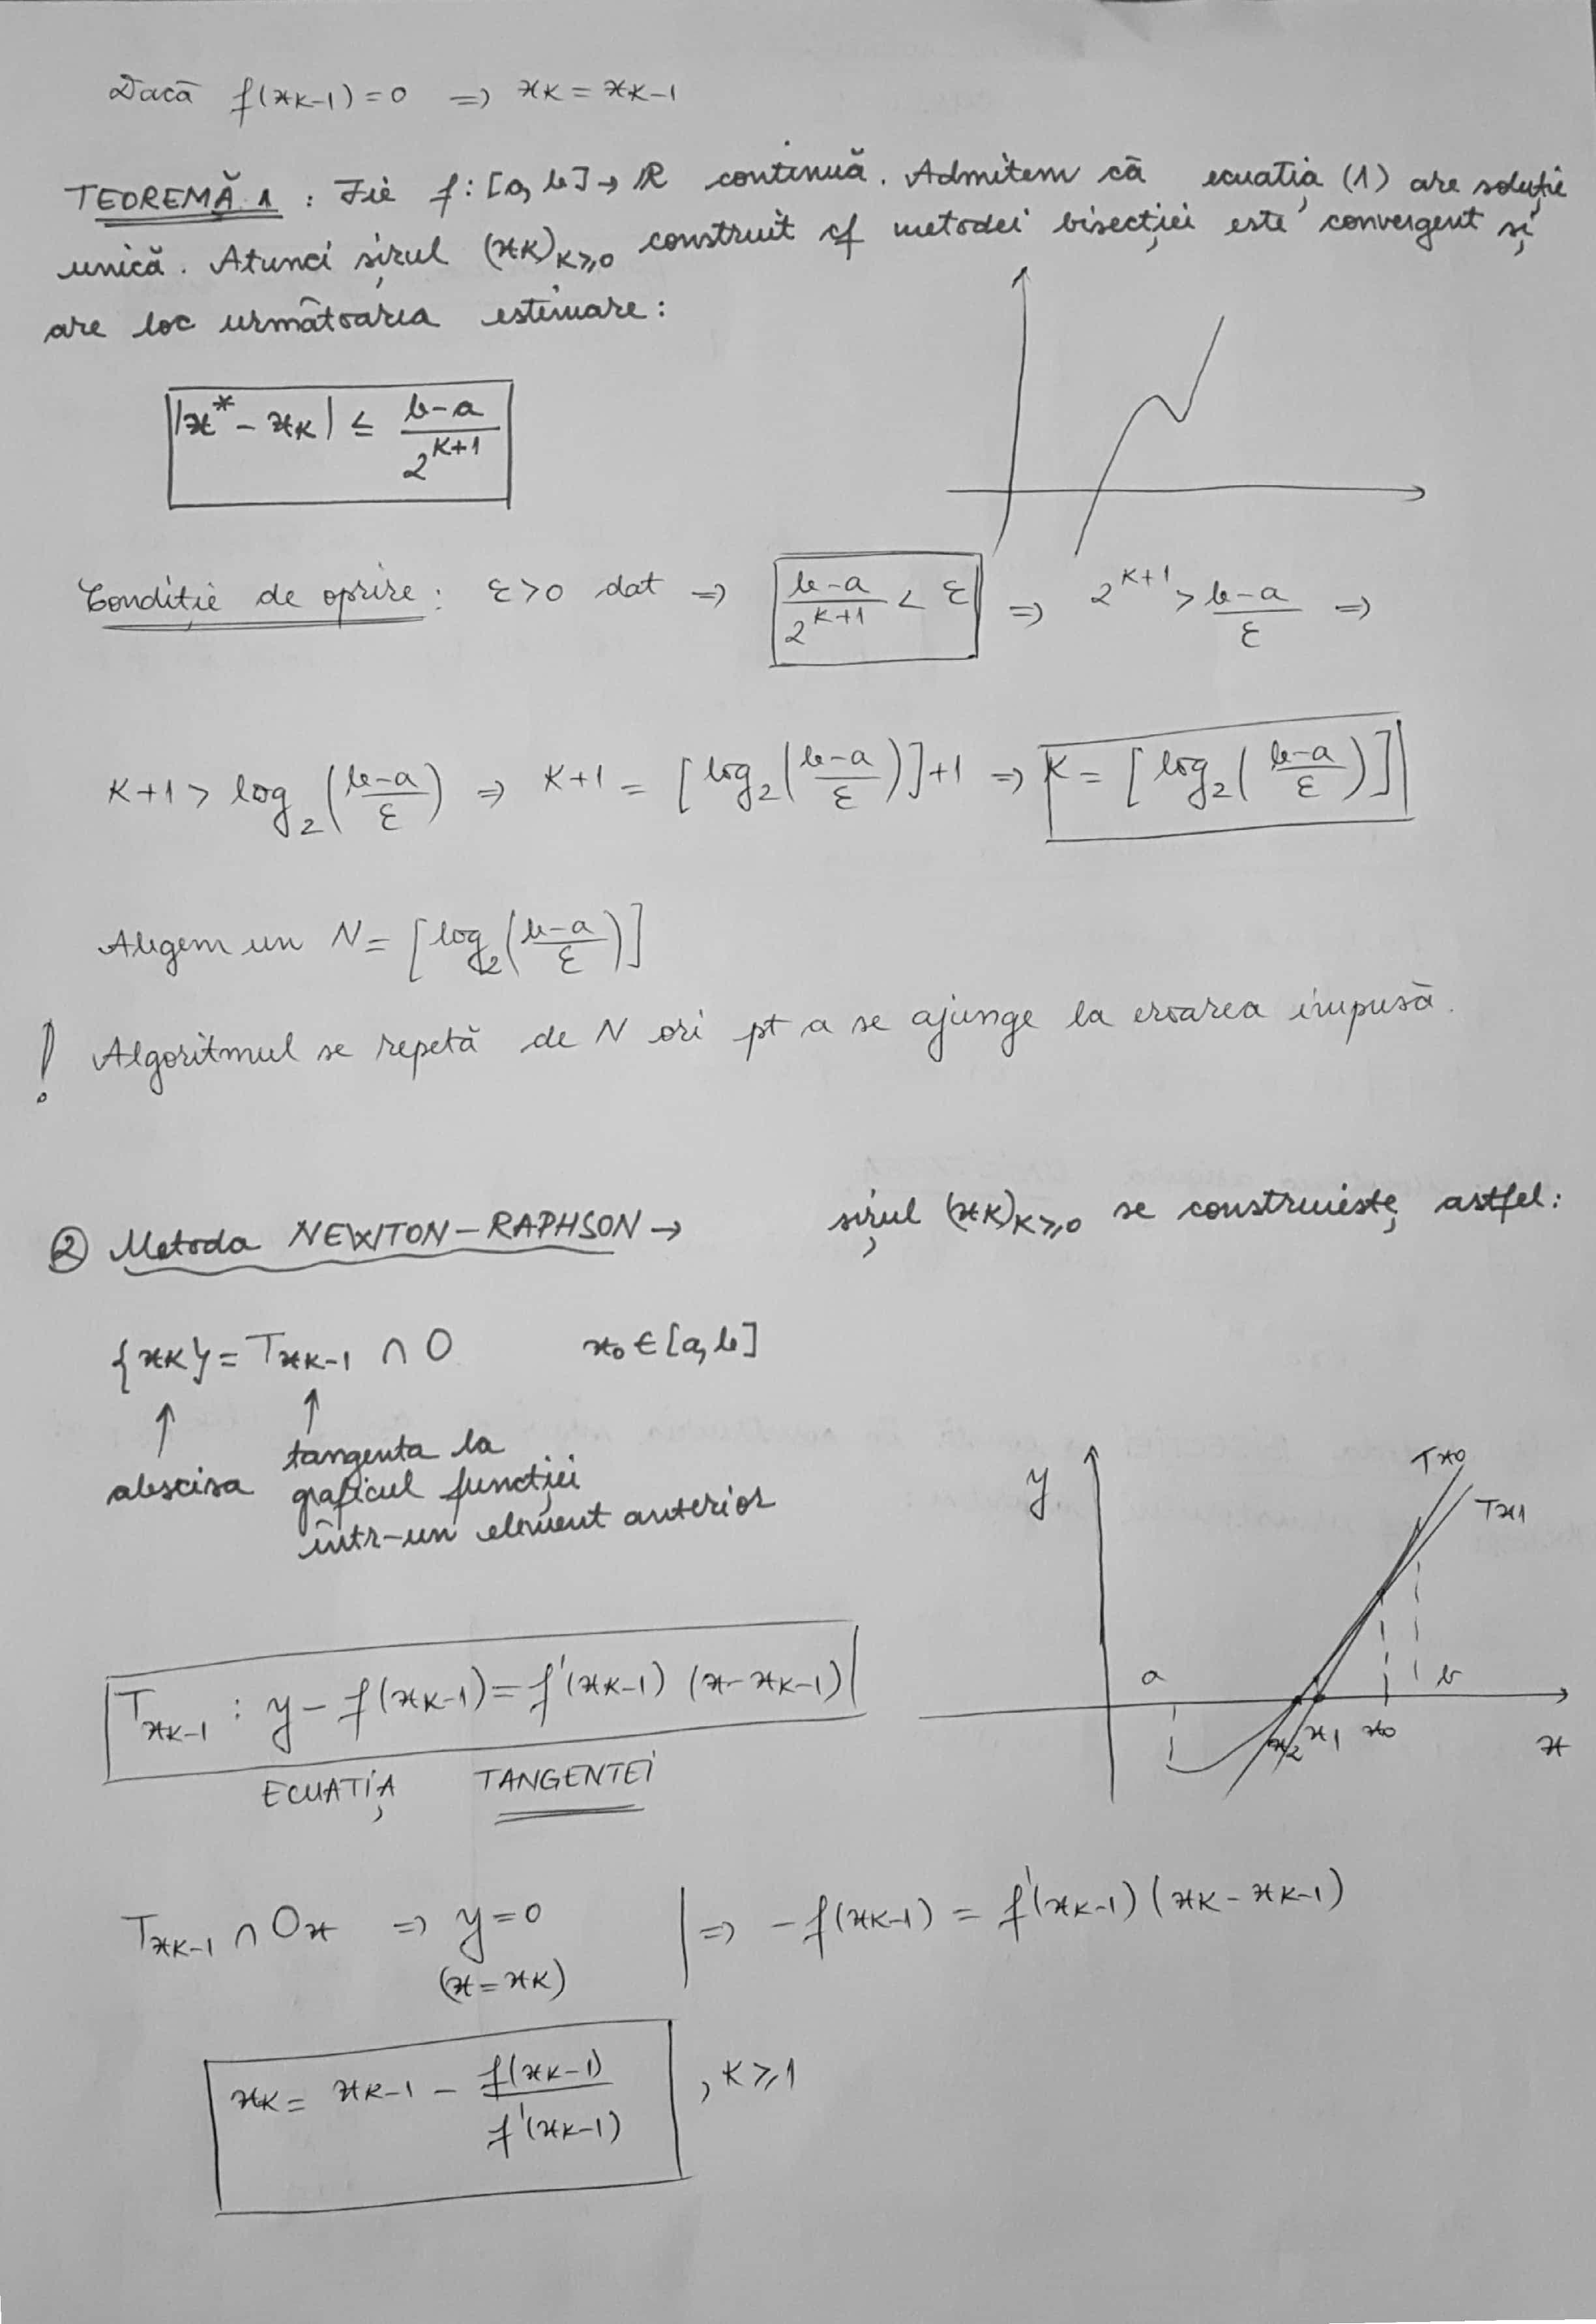 Dacă f(xK-1)=0 => xK = xK-1
TEOREMĂ 1 : Fie f:[a,b]→ℝ continuă. Admitem că ecuația (1) are soluție
unică. Atunci șirul (xK)K≥0 construit cf metodei bisecției este convergent și
are loc următoarea estimare:
|x* - xK| ≤ (b-a)/2^(K+1)
Condiție de oprire: ε>0 dat => (b-a)/2^(K+1) < ε => 2^(K+1) > (b-a)/ε =>
K+1 > log₂((b-a)/ε) => K+1 = [log₂((b-a)/ε)]+1 => K = [log₂((b-a)/ε)]
Alegem un N = [log₂((b-a)/ε)]
! Algoritmul se repetă de N ori pt a se ajunge la eroarea impusă.
② Metoda NEWTON-RAPHSON → șirul (xK)K≥0 se construiește astfel:
{xK} = TxK-1 ∩ O x0 ∈ [a,b]
↑ ↑
abscisa tangenta la
graficul funcției
într-un element anterior
y
Tx0
Tx1
a
b
x2 x1 x0
x
TxK-1 : y - f(xK-1) = f'(xK-1) (x-xK-1)
ECUAȚIA TANGENTEI
TxK-1 ∩ Ox => y=0 | => -f(xK-1) = f'(xK-1)(xK-xK-1)
(x=xK)
xK = xK-1 - f(xK-1)/f'(xK-1) , K≥1